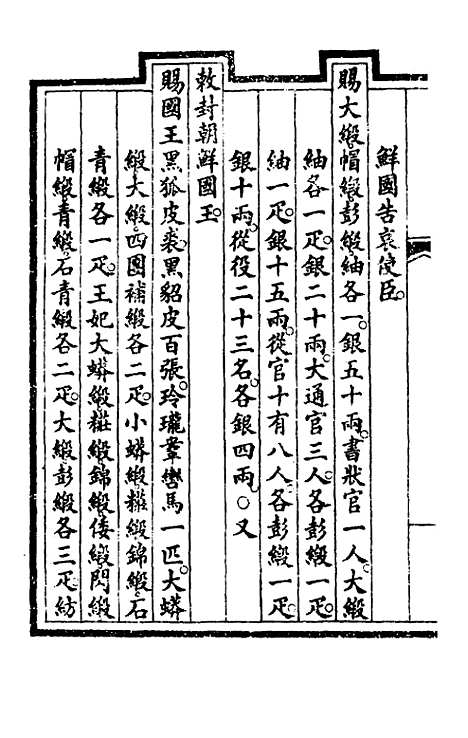 鮮國告哀使臣。
賜大緞帽緞彭緞紬各一。銀五十兩。書狀官一人。大緞
紬各一疋。銀二十兩。大通官三人。各彭緞一疋。
紬一疋。銀十五兩。從官十有八人各彭緞一疋。
銀十兩。從役二十三名。各銀四兩。○又
敕封朝鮮國王。
賜國王黑狐皮裘。黑貂皮百張。玲瓏鞌轡馬一匹。大蟒
緞大緞。四團補緞各二疋。小蟒緞糚緞錦緞。石
青緞各一疋。王妃大蟒緞糚緞錦緞倭緞閃緞
帽緞青緞。石青緞各二疋。大緞彭緞各三疋紡